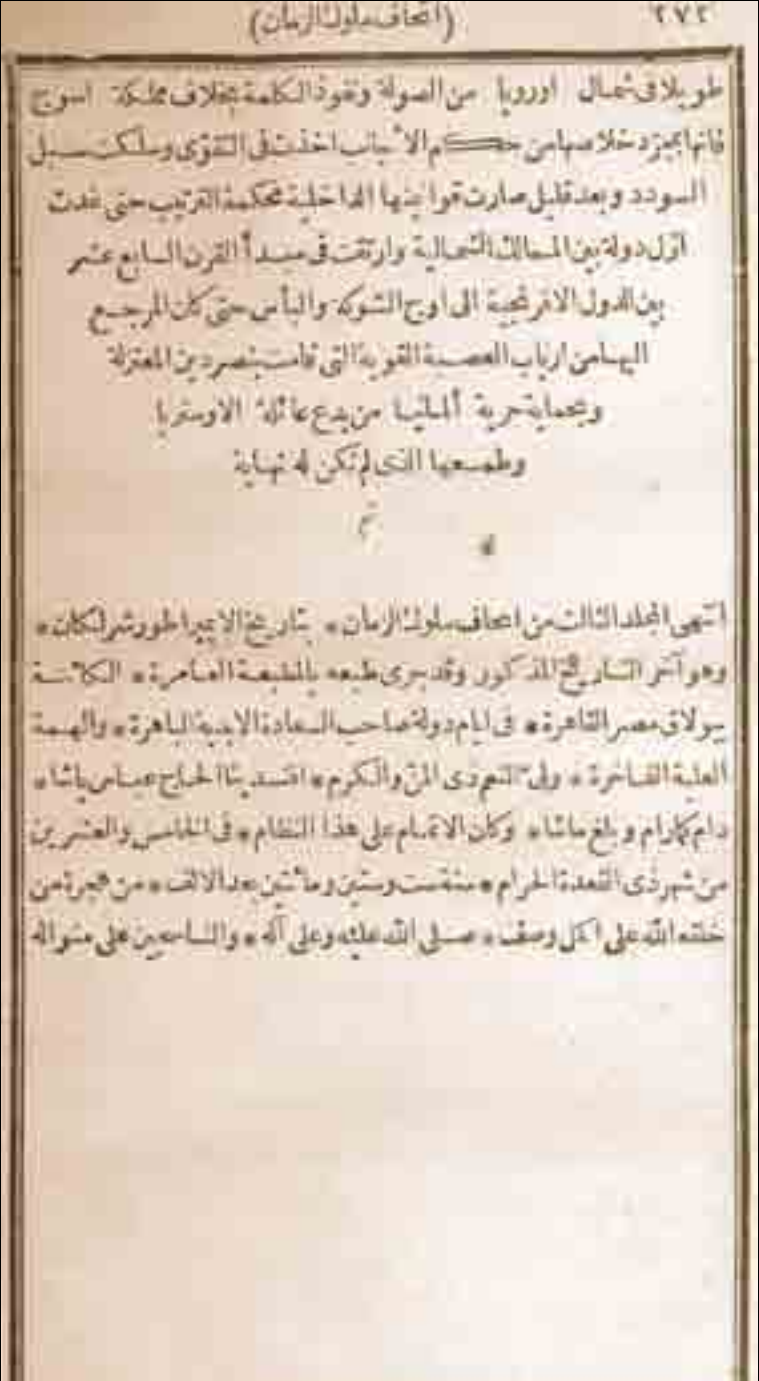 (اتحاف ملوك الزمان) ٢٧٢
طويلا فى شمال اوروپا من الصولة ونفوذ الكلمة بخلاف مملكة اسوج
فانها بمجرد خلاصها من حكام الاجانب اخذت فى التقوى وسلكت سبل
السودد وبعد قليل صارت قوانينها الداخلية محكمة الترتيب حتى غدت
اول دولة بين الممالك الشمالية وارتقت فى مبدأ القرن السابع عشر
بين الدول الافرنجية الى اوج الشوكة والبأس حتى كان المرجع
اليها من ارباب العصبة القوية التى قامت بنصر دين المعتزلة
وبحماية حرية ألمانيا من بدع عائلة الاوستريا
وطمعها الذى لم تكن له نهاية
تم
انتهى المجلد الثالث من اتحاف ملوك الزمان * بتاريخ الايمپراطور شرلكان *
وهو آخر التاريخ المذكور وقد جرى طبعه بالمطبعة العامرة * الكائنة
ببولاق مصر القاهرة * فى ايام دولة صاحب السعادة الابدية الباهرة * والهمة
العلية الفاخرة * ولى النعم ذى المن والكرم * افندينا الحاج عباس باشا *
دام كما رام وبلغ ما شا * وكان الاتمام على هذا النظام * فى الخامس والعشرين
من شهر ذى القعدة الحرام * سنة ست وستين ومائتين بعد الالف * من هجرة من
خلقه الله على اكمل وصف * صلى الله عليه وعلى آله * والناسجين على منواله